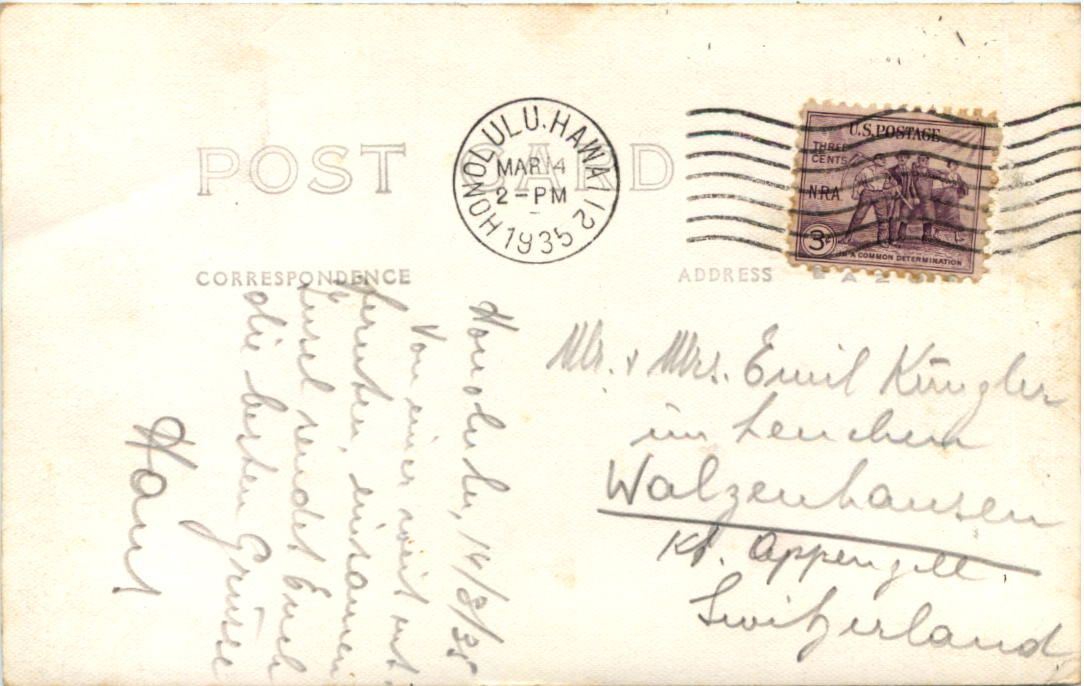 POST CARD
HONOLULU, HAWAII 2
MAR 14
2-PM
1935
U.S. POSTAGE
THREE
CENTS
N.R.A.
3¢
IN A COMMON DETERMINATION
CORRESPONDENCE
ADDRESS
Honolulu, 14/3/35
Von einer weit ent-
fernten, einsamen
Insel sendet Euch
die besten Grüsse
Hans
Mr. & Mrs. Emil Künzler
im Leuchen
Walzenhausen
Kt. Appenzell.
Switzerland